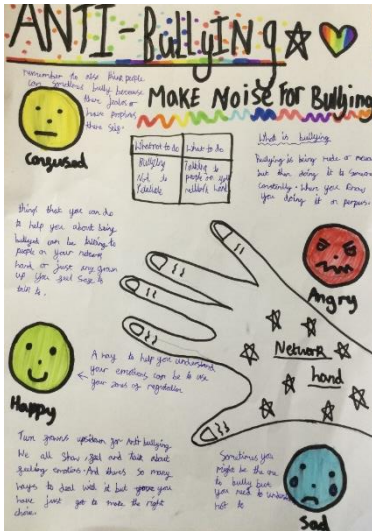 ANTI-BullyING
MAKE NOISE FOR Bullying
Remember to also think people
can sometimes bully because
there jealous or
have problems
there self.
Confused
What not to do
What to do
Bullying
Not to
Talking to
people on your
network hand
What is bullying
Bullying is being rude or mean
but then doing it to someone
constantly. When you know
you doing it on purpose.
things that you can do
to help you about being
bullyed can be talking to
people on your network
hand or just any grown
up you feel safe to
talk to.
Angry
Network
hand
Happy
A way to help you understand
your emotions can be to use
your zones of regulation
Turn frowns upsidown for Anti bullying
We all show, feel and talk about
feeling emotions. And theres so many
ways to deal with it but you
have just got to make the right
choice.
Sometimes you
might be the one
to bully but
you need to
not to
Sad